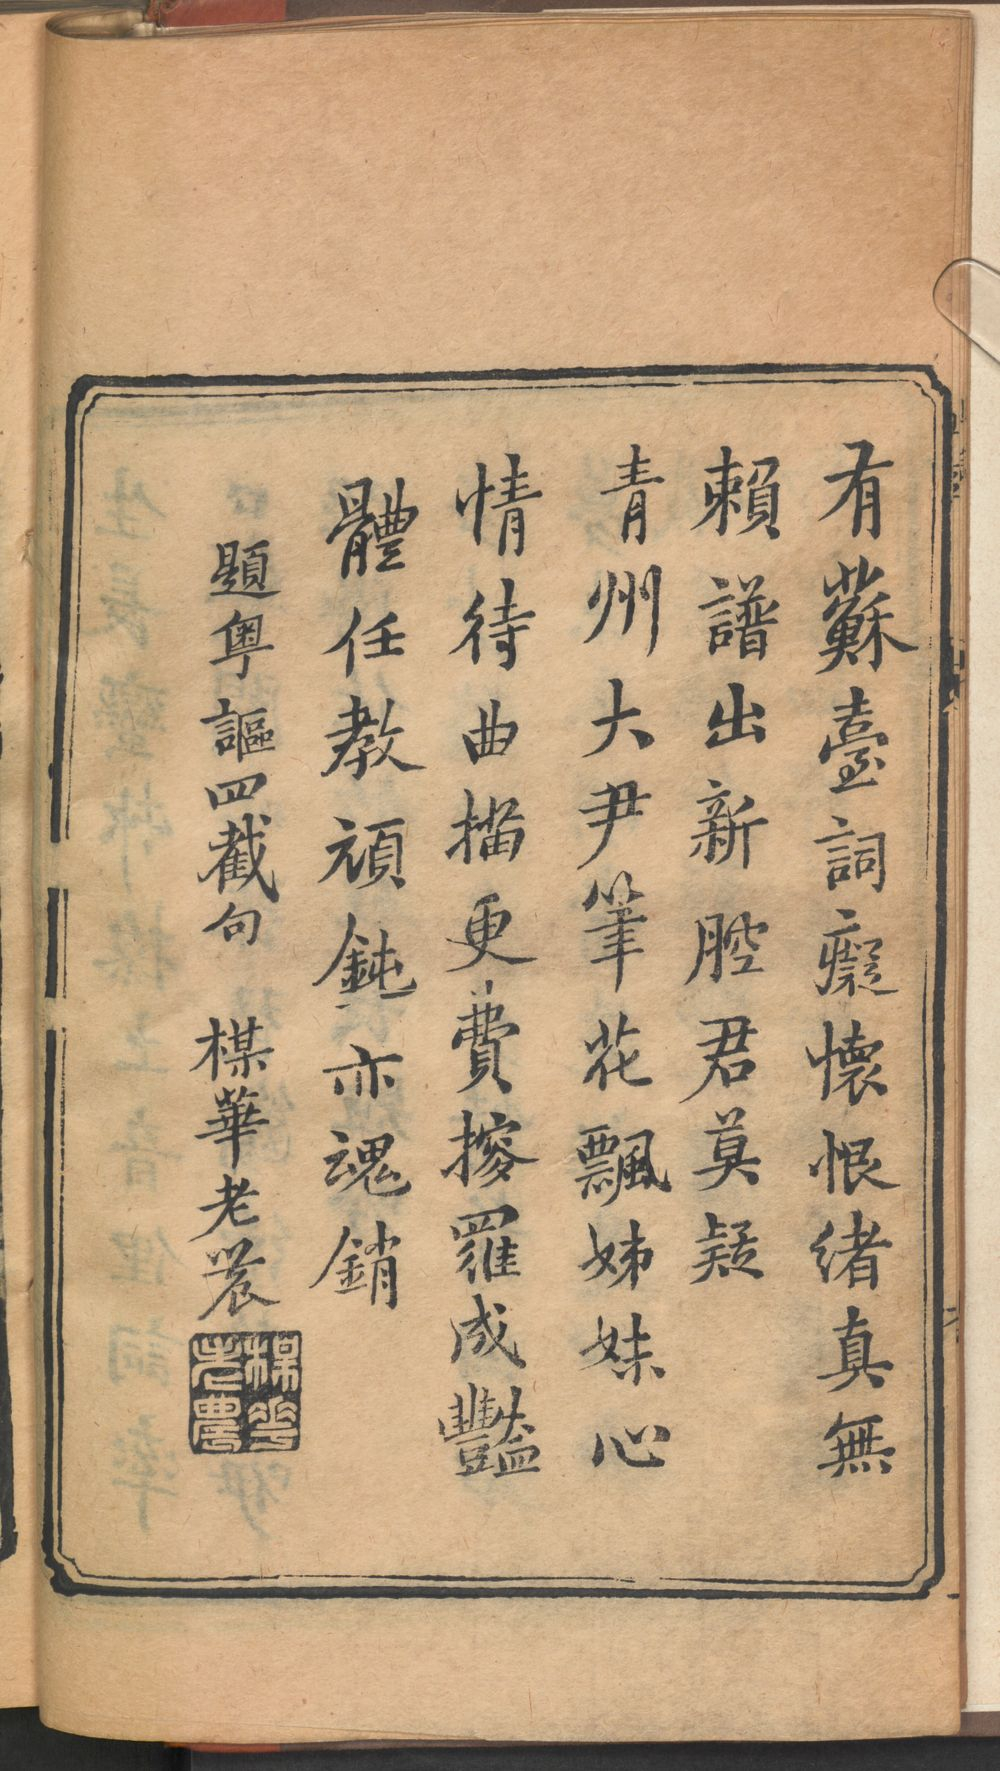 有蘇臺詞癡懷恨緒真無
賴譜出新腔君莫疑
青州大尹筆花飄姊妹心
情待曲描更費搜羅成豔
體任教頑鈍亦魂銷
題粵謳四截句
楳華老農
楳華老農